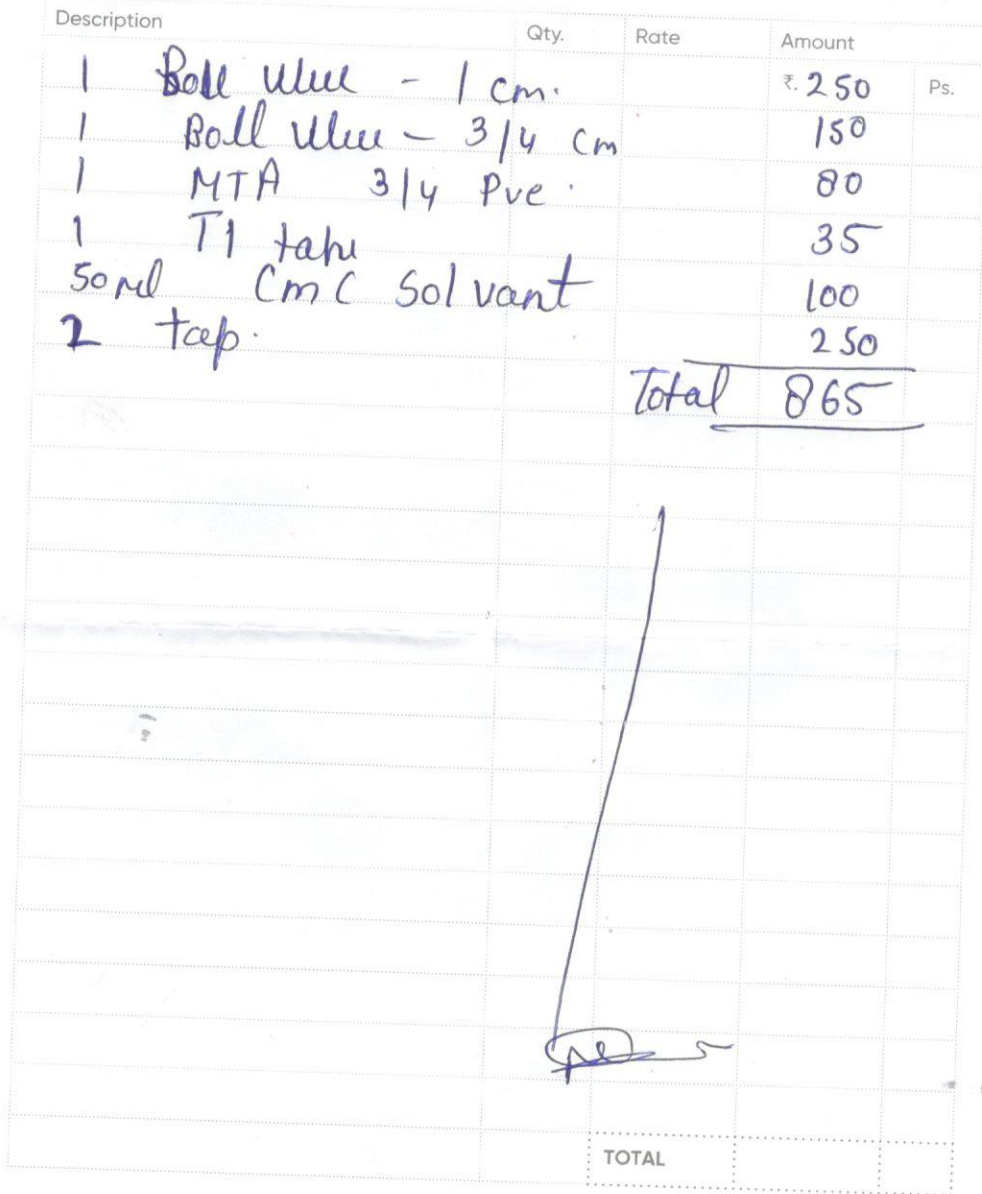 Description Qty. Rate Amount
1 Boll Ulue - 1 cm. ₹. 250 Ps.
1 Boll Ulue - 3/4 cm 150
1 MTA 3/4 Pvc. 80
1 T1 tape 35
50 ml CmC Solvant 100
2 tap. 250
Total 865
TOTAL